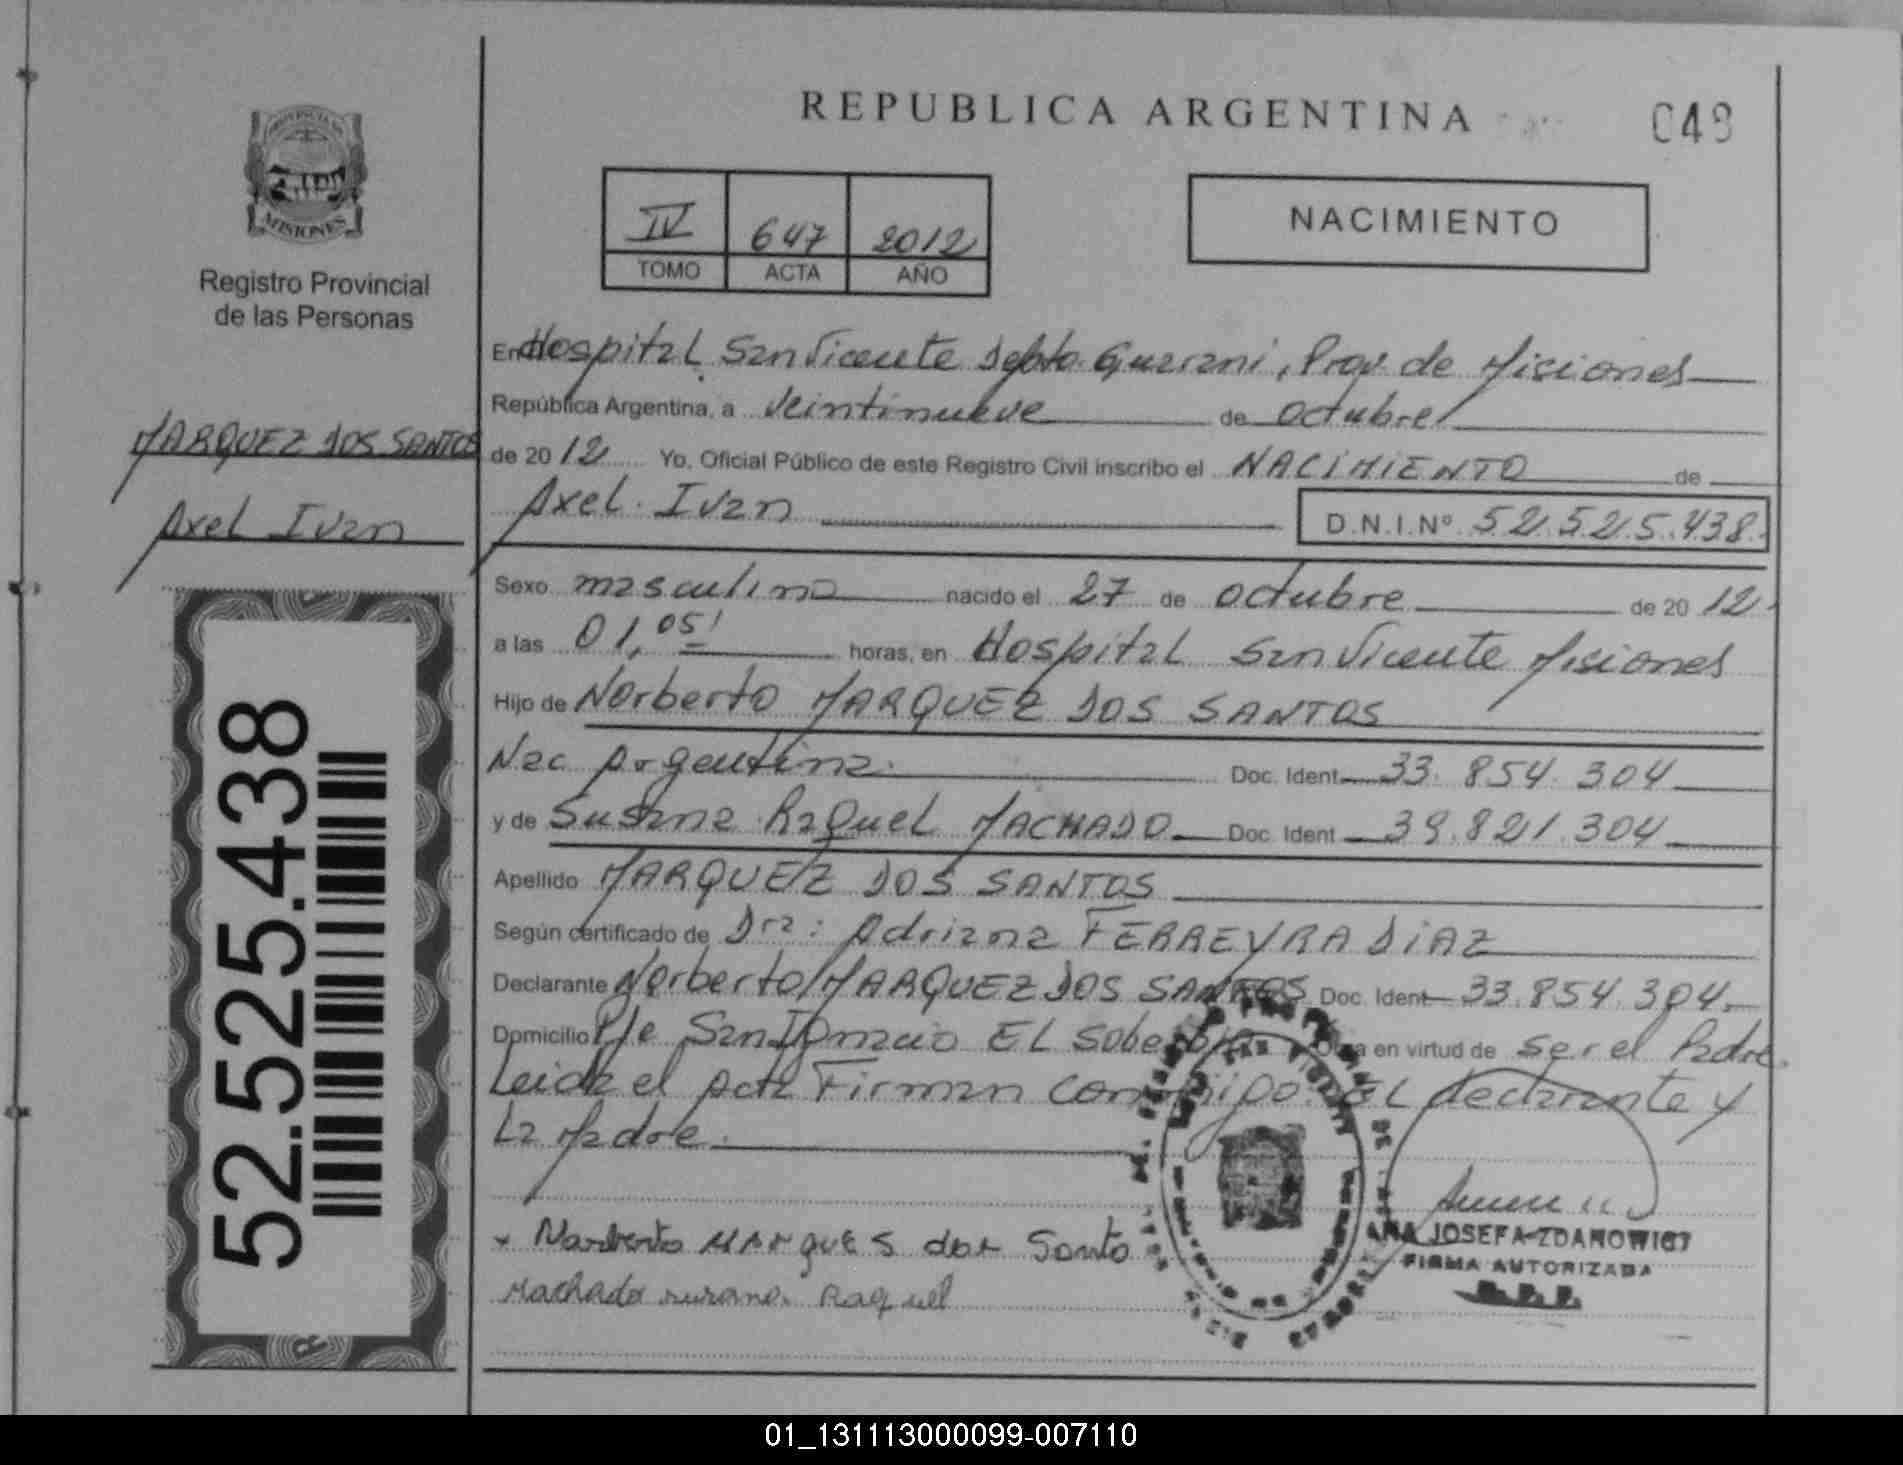 REPUBLICA ARGENTINA
049
MISIONES
Registro Provincial
de las Personas
IV 647 2012
TOMO ACTA AÑO
NACIMIENTO
MARQUEZ DOS SANTOS
Axel Ivan
52.525.438
En Hospital San Vicente Depto. Guarani, Prov. de Misiones
República Argentina, a veintinueve de octubre
de 2012 Yo, Oficial Público de este Registro Civil inscribo el NACIMIENTO de
Axel Ivan D.N.I.Nº 52.525.438.
Sexo masculino nacido el 27 de octubre de 2012
a las 01,05' horas, en Hospital San Vicente Misiones
Hijo de Norberto MARQUEZ DOS SANTOS
Nac Argentina. Doc. Ident 33.854.304
y de Susana Raquel MACHADO Doc. Ident 39.821.304
Apellido MARQUEZ DOS SANTOS
Según certificado de Dra: Adriana FERREYRA DIAZ
Declarante Norberto MARQUEZ DOS SANTOS Doc. Ident 33.854.304
Domicilio Pje San Ignacio EL Soberbio Obra en virtud de ser el Padre.
Leida el Acta Firman conmigo. EL declarante y
La Madre.
Norberto MARQUES dos Santo
Machado susana. Raquel
ANA JOSEFA ZDANOWICZ
FIRMA AUTORIZADA
01_131113000099-007110